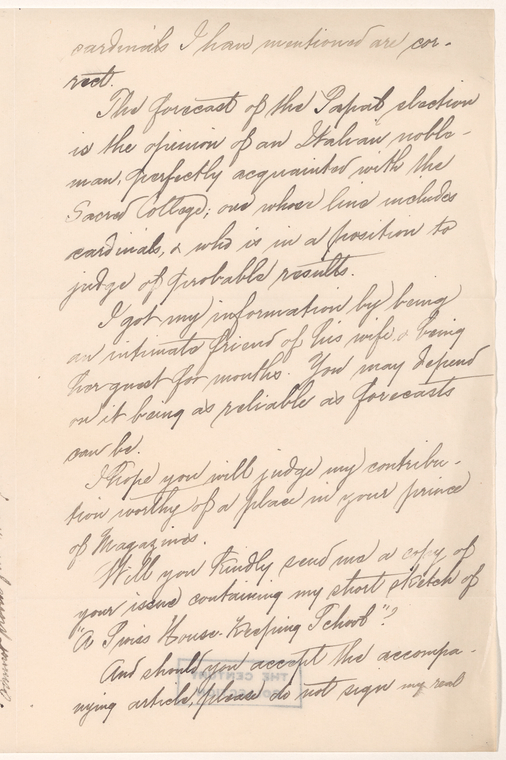 cardinals I have mentioned are cor-
rect.
The forecast of the Papal election
is the opinion of an Italian noble-
man, perfectly acquainted with the
Sacred College; one whose line includes
cardinals, & who is in a position to
judge of probable results.
I got my information by being
an intimate friend of his wife & being
her guest for months. You may depend
on it being as reliable as forecasts
can be.
I hope you will judge my contribu-
tion worthy of a place in your prince
of Magazines.
Will you kindly send me a copy of
your issue containing my short sketch of
"A Swiss House-Keeping School"?
And should you accept the accompa-
nying article, please do not sign my real
THE CENTURY
COLLECTION